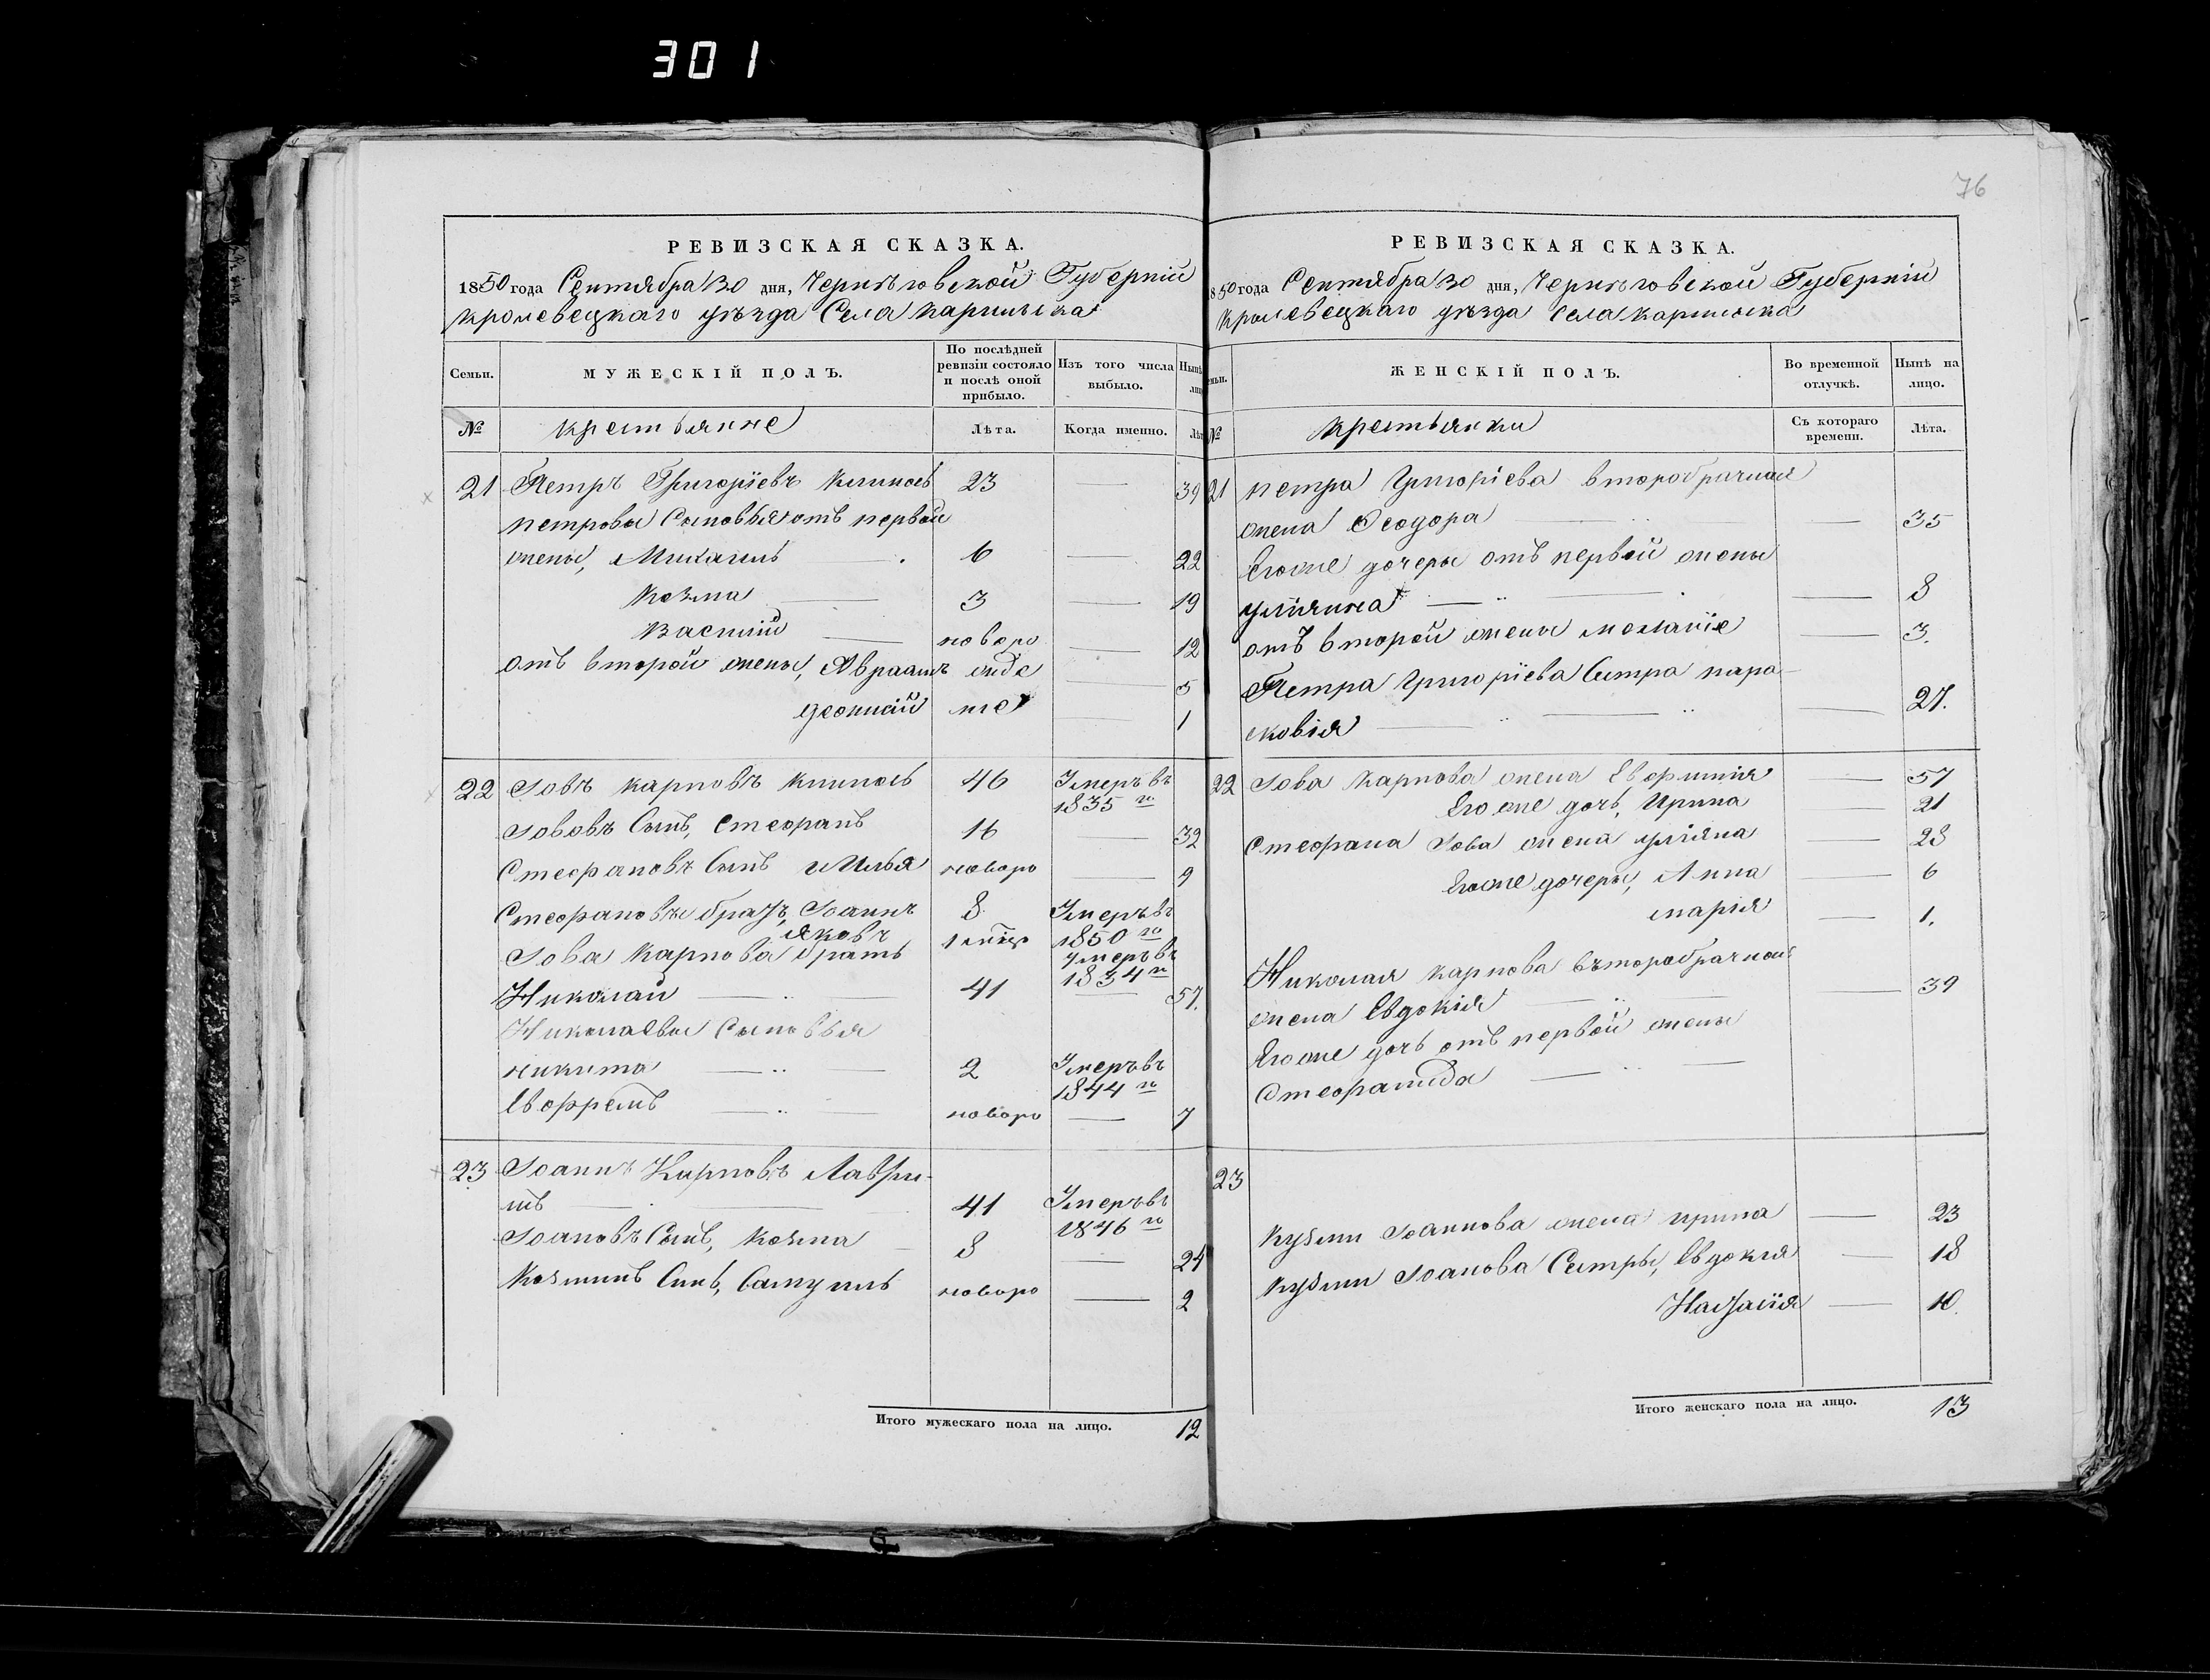 301
76
РЕВИЗСКАЯ СКАЗКА.
1850 года Сентября 30 дня, Черниговской Губерніи
Кролевецкаго уѣзда Села Карпильска
Семьи.
МУЖЕСКІЙ ПОЛЪ.
По послѣдней ревизіи состояло и послѣ оной прибыло.
Изъ того числа выбыло.
№
крестьянне
Лѣта.
Когда именно.
21 Петръ Григоріевъ Климовъ 23 — 39
петровы Сыновья отъ первой
жены, Михаилъ — 6 — 22
Козма — 3 — 19
Василій — новоро — 12
отъ второй жены, Авраамъ — 5
1
22 Іовъ карповъ 46 Умеръ въ 1835 го
Іововъ Сынъ, Стефанъ 16 — 32
Стефановъ Сынъ Илья новоро — 9
Стефановы братъ, Іоаннъ 8 Умеръ въ 1850 го
Яковъ 1 Умеръ въ 1834 го
Іова Карпова братъ
Николай — 41 — 57.
Николаевы Сыновья
никита — 2 Умеръ въ 1844 го
новоро — 7
23 Іоаннъ Карповъ
41 Умеръ въ 1846 го
Іоановъ Сынъ, Козма — 8 — 24
Козминъ Сынъ, Самуилъ новоро — 2
Итого мужескаго пола на лицо. 12
РЕВИЗСКАЯ СКАЗКА.
1850 года Сентября 30 дня, Черниговской Губерніи
Кролевецкаго уѣзда Села Карпильска
ЖЕНСКІЙ ПОЛЪ.
Во временной отлучкѣ.
Нынѣ на лицо.
№
крестьянки
Съ котораго времени.
Лѣта.
21 петра Григоріева второбрачная
жена Феодора — 35
Егоже дочеры отъ первой жены
уліяна — 8
отъ второй жены меланіе — 3.
Петра Григоріева Систра пара-
сковія — 27.
22 Іова Карпова жена — 57
Его же дочь, Ирина — 21
Стефана Іова жена уліяна — 28
Егоже дочеры, Анна — 6
марія — 1.
Николая Карпова второбрачная
жена Евдокія — 39
Егоже дочь отъ первой жены
Стефанида —
23
кузми Іоаннова жена ирина — 23
кузми Іоанова Систры, Евдокія — 18
10.
Итого женскаго пола на лицо. 13